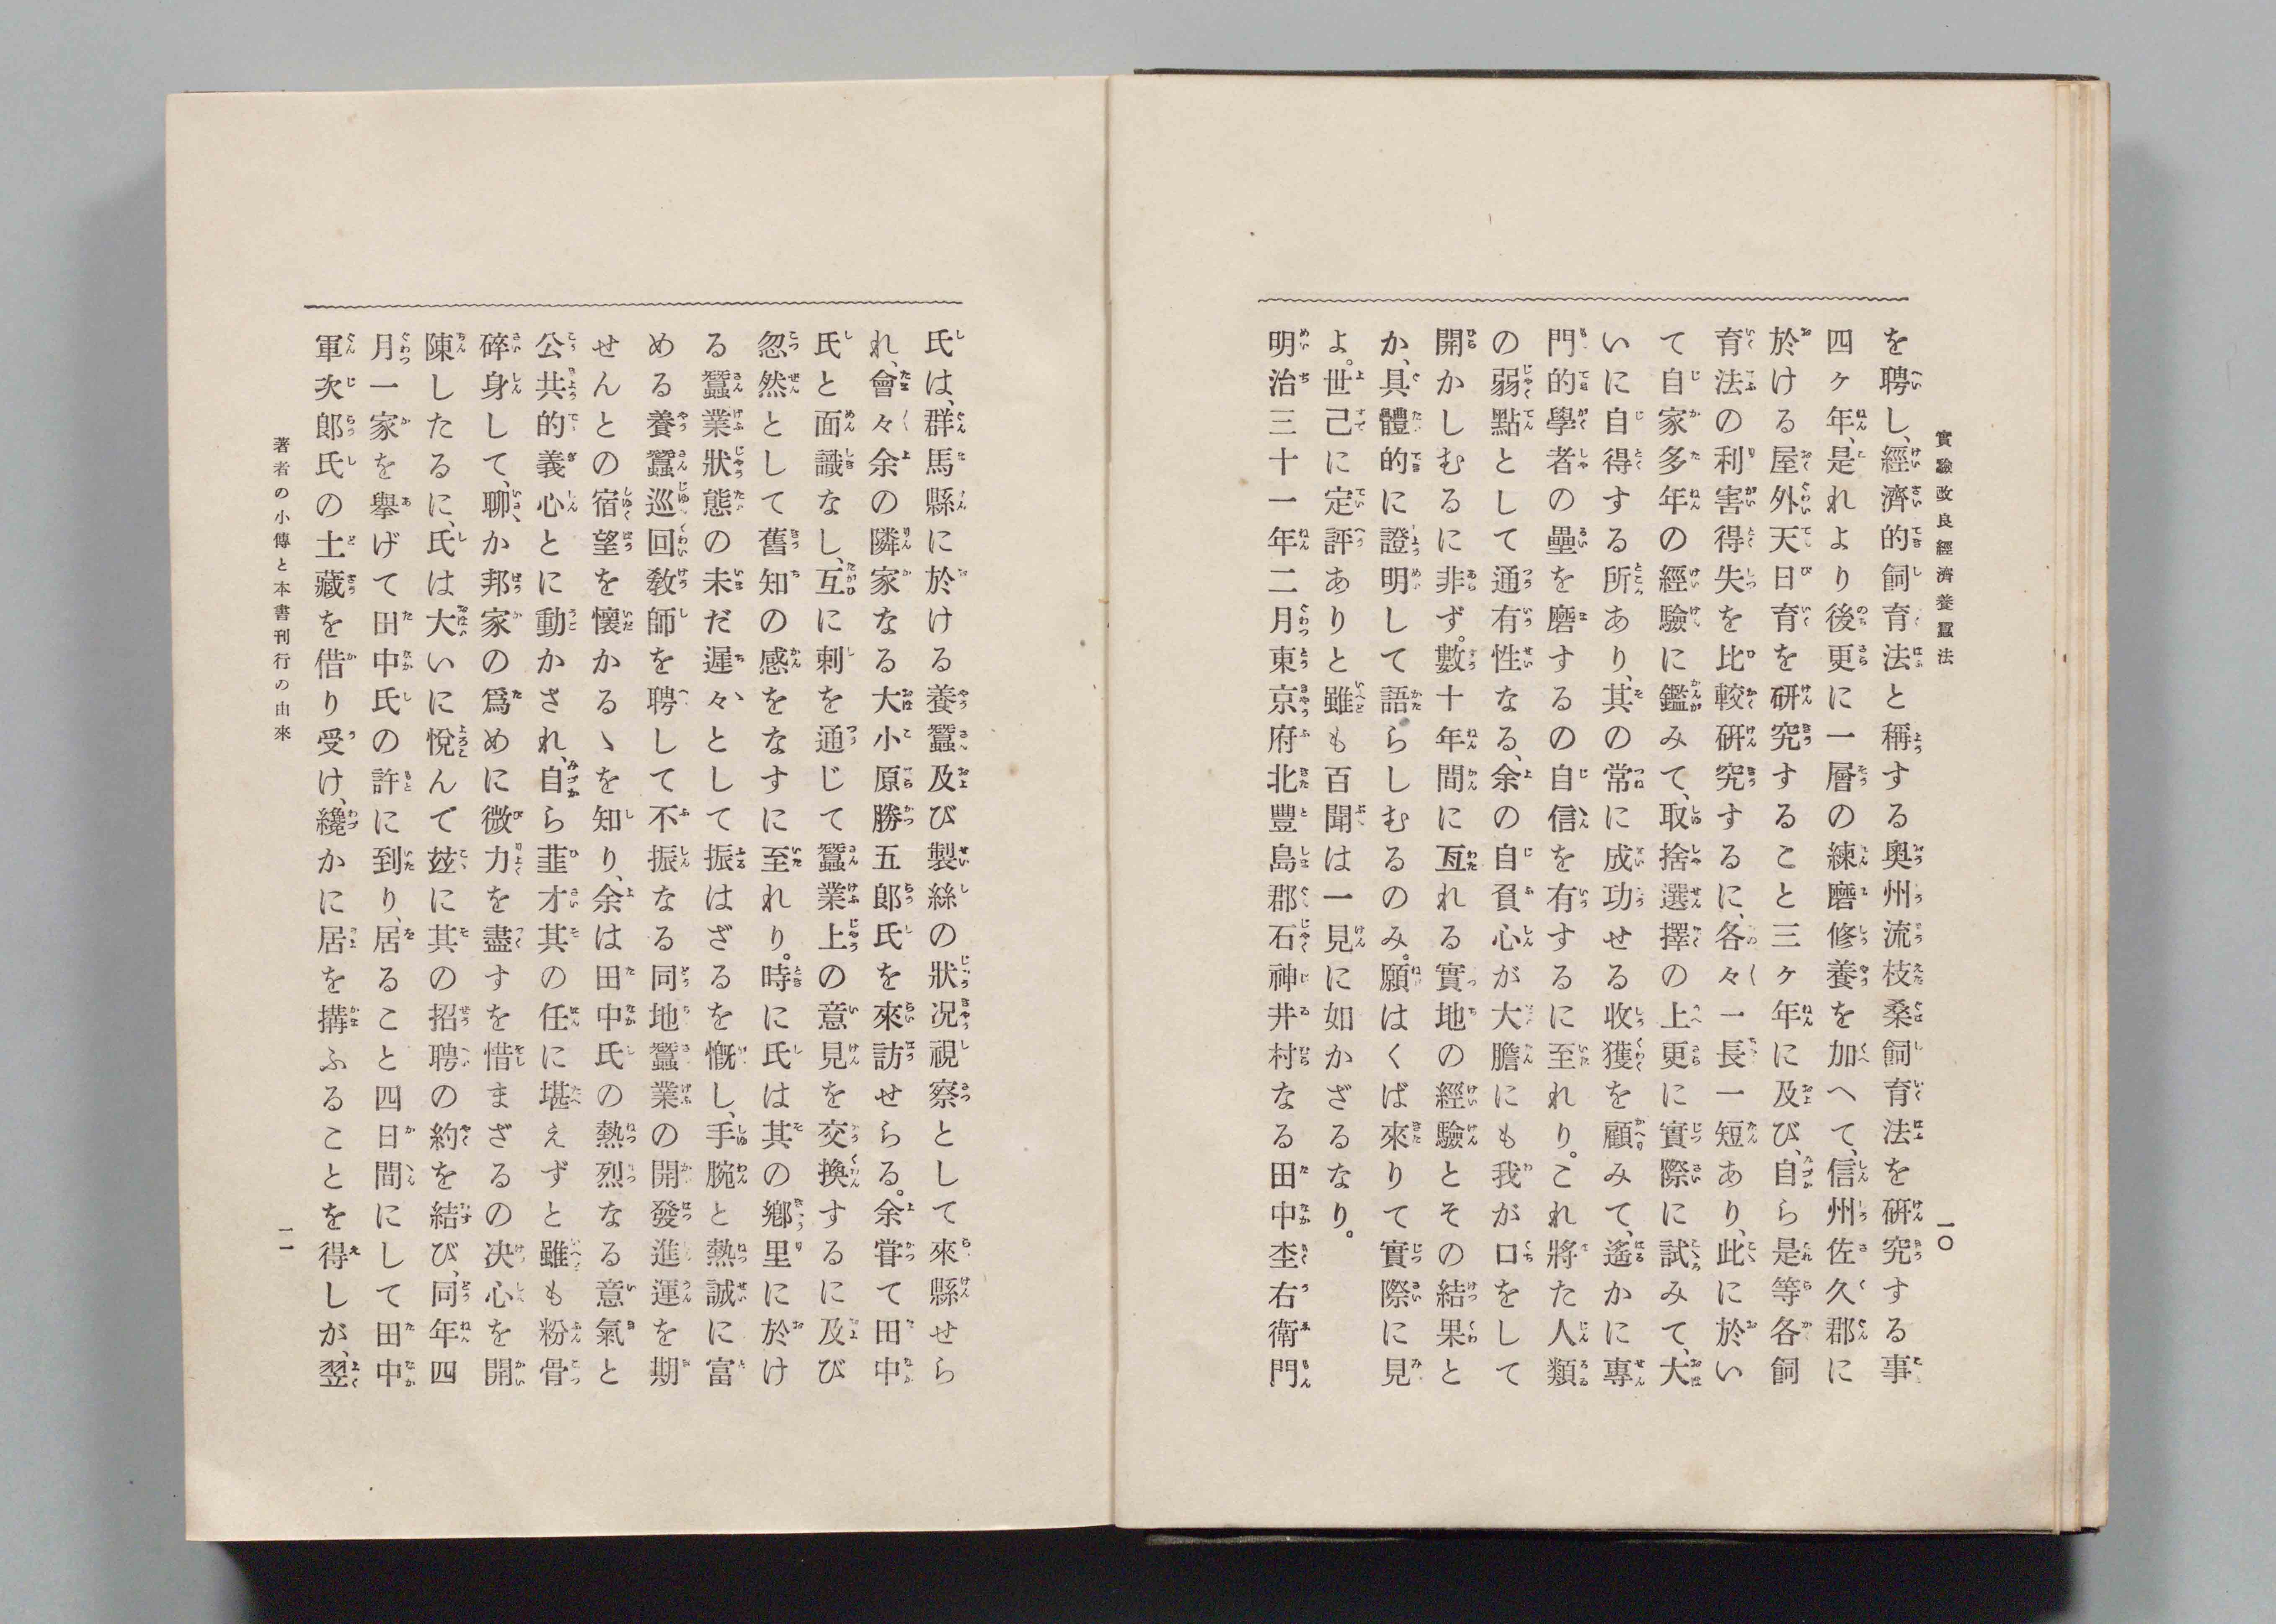 實驗改良經濟養蠶法
一〇
を聘し、經濟的飼育法と稱する奧州流枝桑飼育法を硏究する事
四ヶ年、是れより後更に一層の練磨修養を加へて、信州佐久郡に
於ける屋外天日育を硏究すること三ヶ年に及び、自ら是等各飼
育法の利害得失を比較硏究するに、各々一長一短あり、此に於い
て自家多年の經驗に鑑みて、取捨選擇の上更に實際に試みて、大
いに自得する所あり、其の常に成功せる收獲を顧みて、遙かに專
門的學者の壘を磨するの自信を有するに至れり。これ將た人類
の弱點として通有性なる、余の自負心が大膽にも我が口をして
開かしむるに非ず。數十年間に亙れる實地の經驗とその結果と
か、具體的に證明して語らしむるのみ。願はくば來りて實際に見
よ。世已に定評ありと雖も百聞は一見に如かざるなり。
明治三十一年二月東京府北豐島郡石神井村なる田中杢右衛門
氏は、群馬縣に於ける養蠶及び製絲の狀況視察として來縣せら
れ、會々余の隣家なる大小原勝五郎氏を來訪せらる。余甞て田中
氏と面識なし、互に刺を通じて蠶業上の意見を交換するに及び
忽然として舊知の感をなすに至れり。時に氏は其の鄕里に於け
る蠶業狀態の未だ遲々として振はざるを慨し、手腕と熱誠に富
める養蠶巡回敎師を聘して不振なる同地蠶業の開發進運を期
せんとの宿望を懷かるゝを知り、余は田中氏の熱烈なる意氣と
公共的義心とに動かされ、自ら菲才其の任に堪えずと雖も粉骨
碎身して、聊か邦家の爲めに微力を盡すを惜まざるの決心を開
陳したるに、氏は大いに悅んで玆に其の招聘の約を結び、同年四
月一家を擧げて田中氏の許に到り、居ること四日間にして田中
軍次郎氏の土藏を借り受け、纔かに居を搆ふることを得しが、翌
著者の小傳と本書刊行の由來
一一